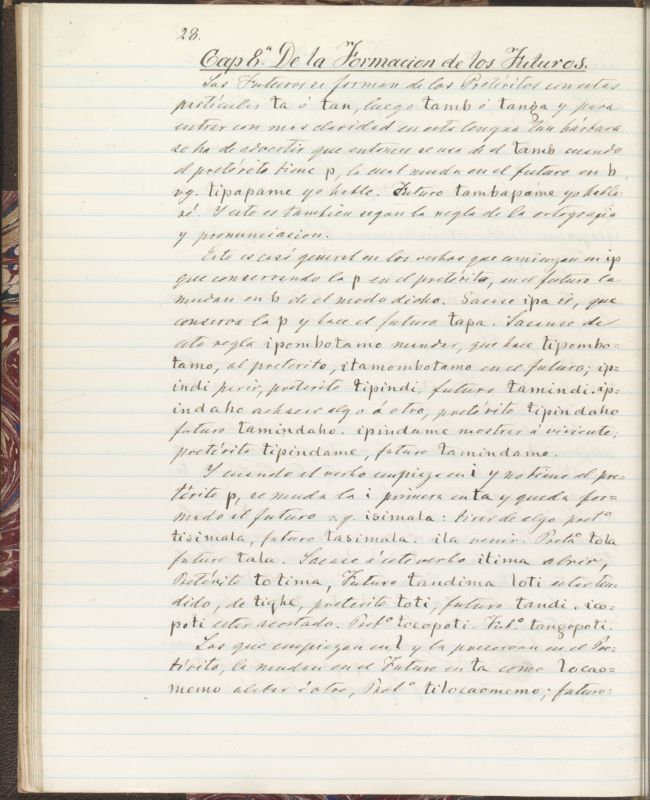 28.
Cap 8.º De la Formacion de los Futuros.
Los Futuros se forman de los Pretéritos con estas
particulas ta ó tan, luego tamb ó tanga y para
entrar con mas claridad en esta lengua tan bárbara
se ha de advertir que entonces se usa de el tamb cuando
el pretérito tiene p, la cual muda en el futuro en b
vg. tipapame yo hable. Futuro tambapáme yo habla-
ré. Y esto es tambien segun la regla de la ortografia
y pronunciacion.
Esto es casi general en los verbos que comienzan en ip
que conservando la p en el pretérito, en el futuro la
mudan en b de el modo dicho. Sacase ipa ir, que
conserva la p y hace el futuro tapa. Sacanse de
esta regla ipombotamo mandar, que hace tipombo=
tamo, al preterito, itamombotamo en el futuro; ip=
indi perir, preterito tipindi, futuro tamindi. ip=
indaho achacar algo á otro, pretérito tipindaho
futuro tamindaho. ipindame mostrar á viviente;
pretérito tipindame, futuro tamindame.
Y cuando el verbo empieza en i y no tiene el pre=
térito p, se muda la i primera en ta y queda for=
mado el futuro v.g. isimala: tirar de algo pret.º
tisimala, futuro tasimala. ila venir. Pret.º tola
futuro tala. Sacase á este verbo itima abrir,
Pretérito totima, Futuro tandima loti estar ten-
dido, de tighe, preterito toti, futuro tandi. ico=
poti estar acostado. Pret.º tocopoti. Fut.º tangopoti.
Los que empiezan en l y la conservan en el Pre=
térito, la mudan en el Futuro en ta como locao=
memo á otro, Pret.º tilocaomemo; futuro: